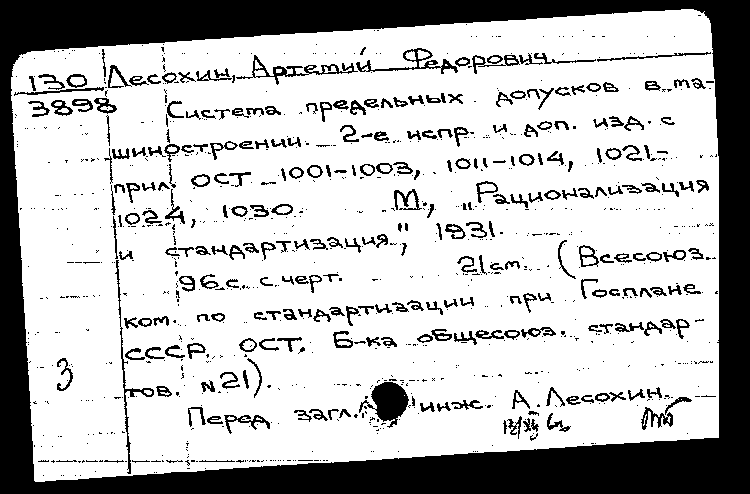 130 Лесохин, Артемий Федорович.
3898 Система предельных допусков в ма-
шиностроении. 2-е испр. и доп. изд. с
прил. ОСТ 1001-1003, 1011-1014, 1021-
1024, 1030. М., „Рационализация
и стандартизация", 1931.
96 с. с черт. 21 см. (Всесоюз.
ком. по стандартизации при Госплане
СССР. ОСТ. Б-ка общесоюз. стандар-
3 тов. №21).
Перед загл. инж. А. Лесохин.